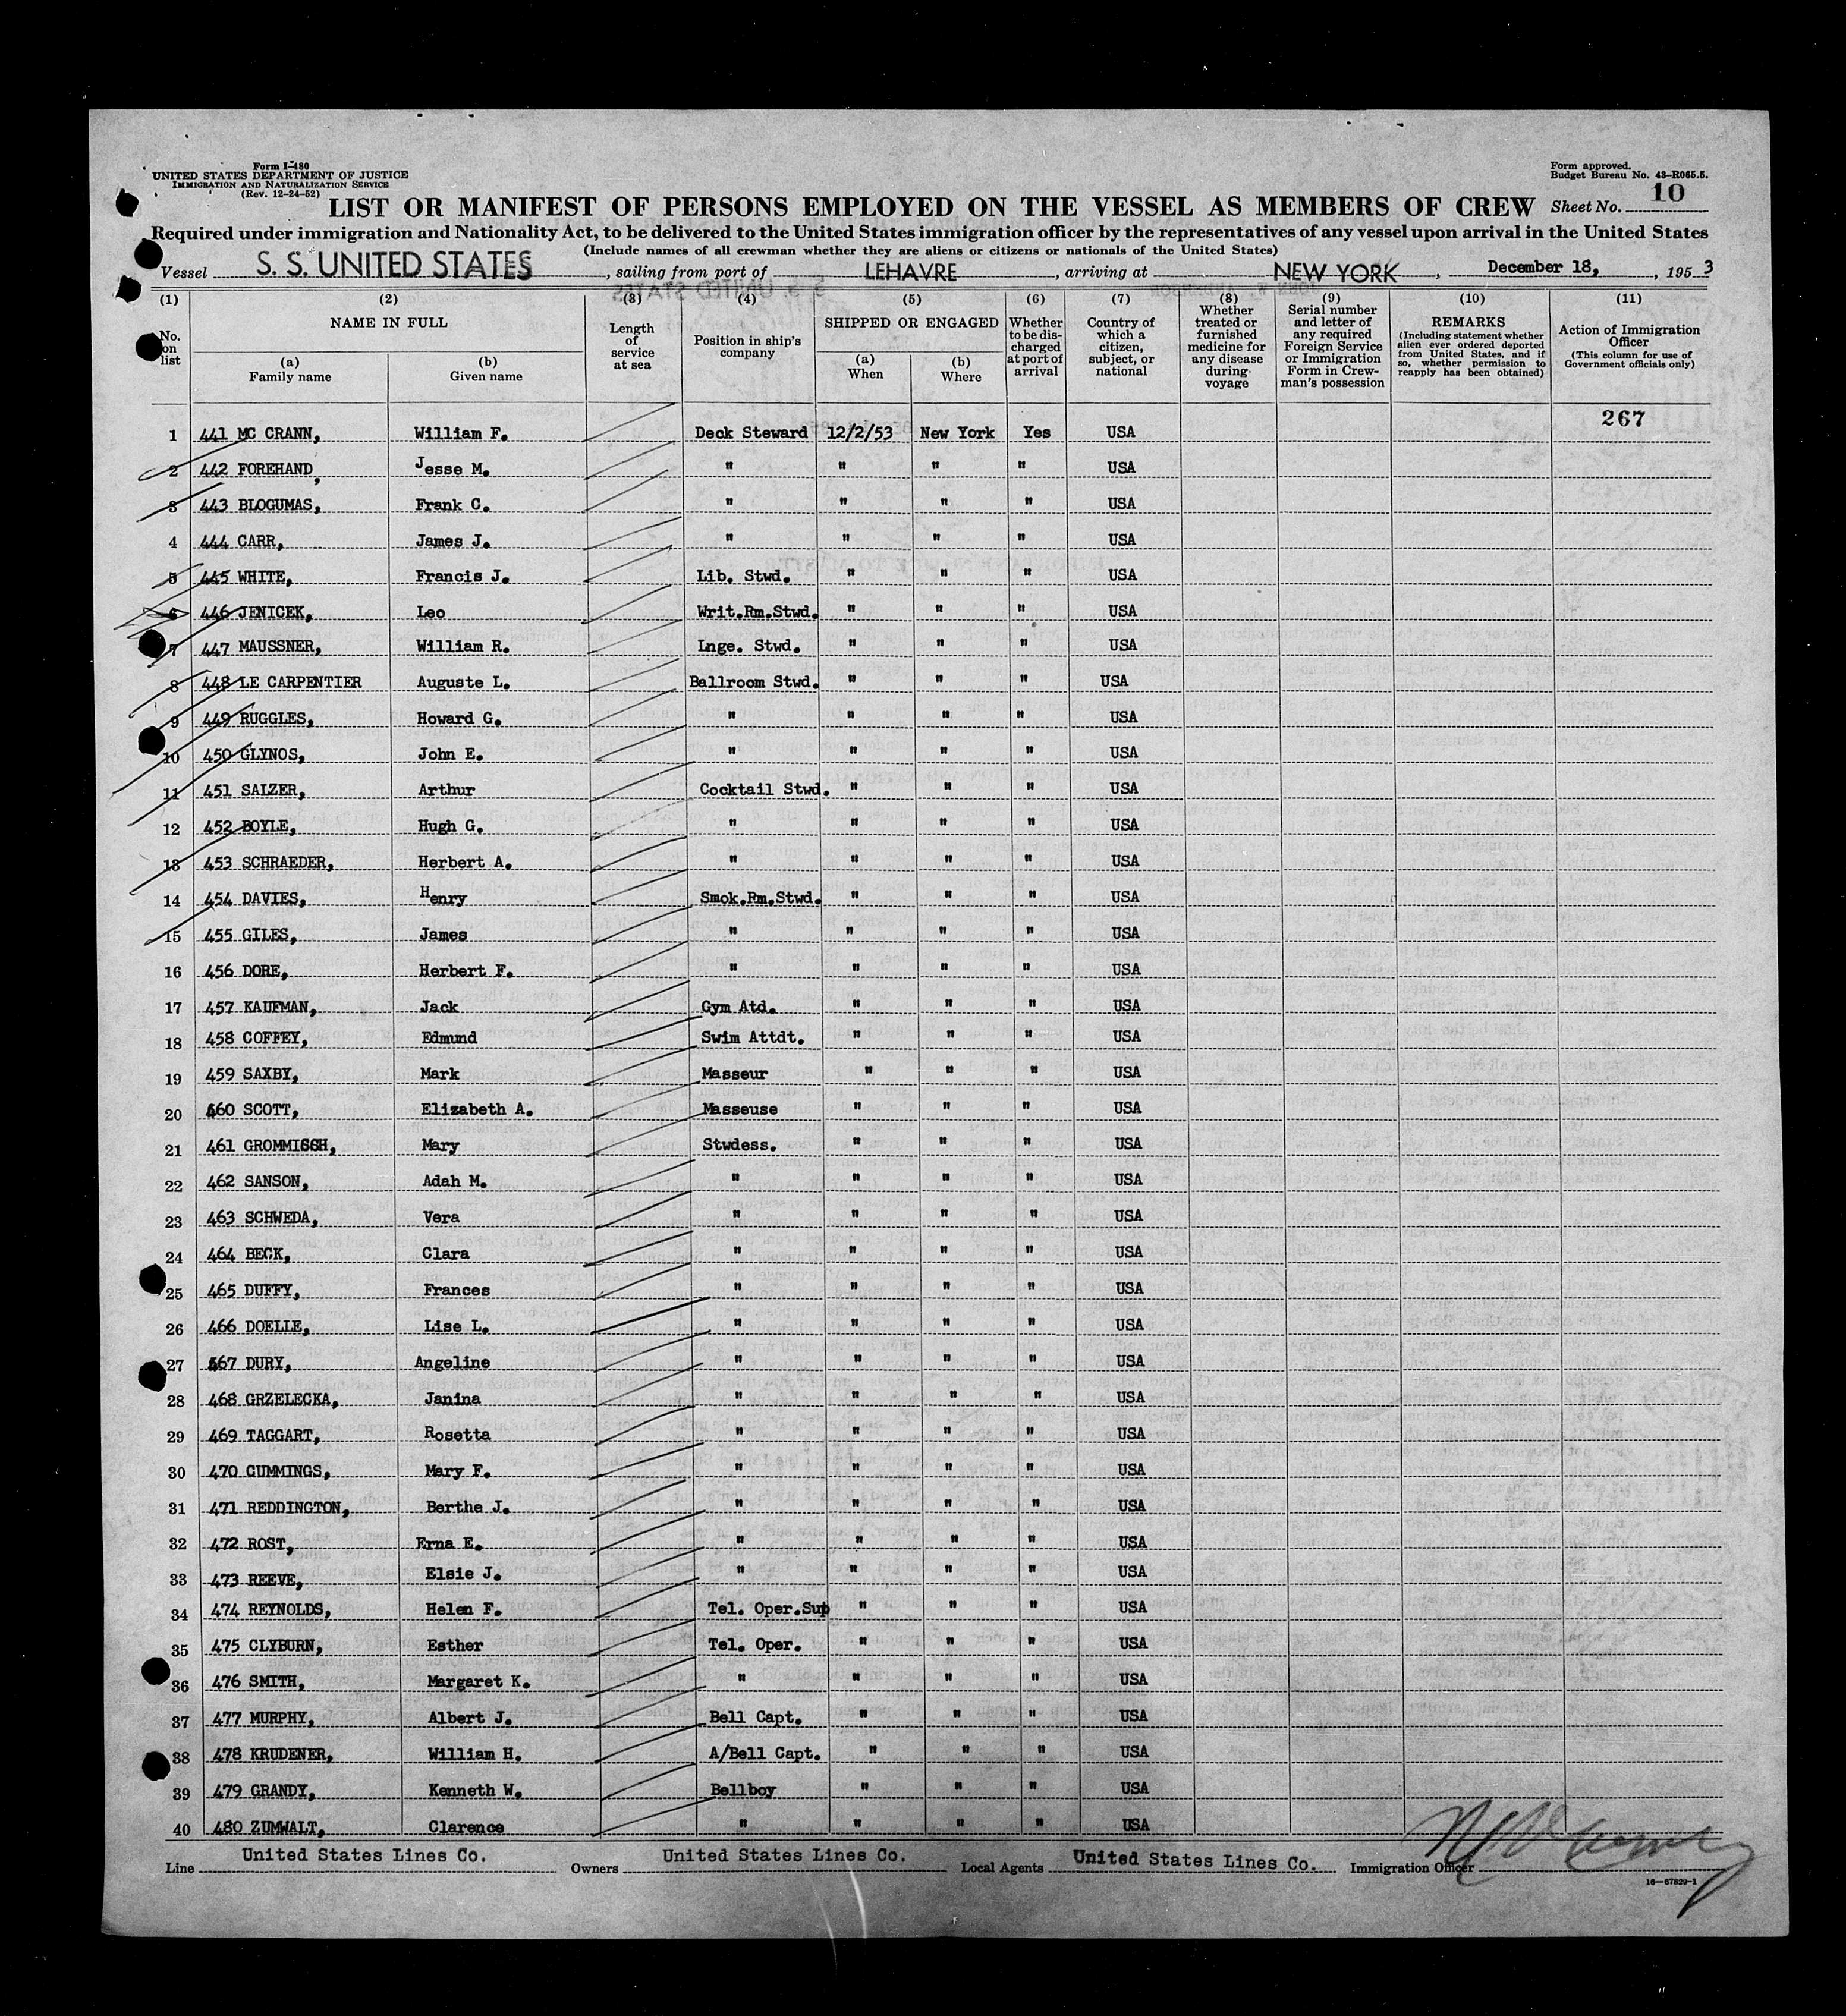 Form I-480
UNITED STATES DEPARTMENT OF JUSTICE
IMMIGRATION AND NATURALIZATION SERVICE
(Rev. 12-24-52)
Form approved.
Budget Bureau No. 43-R065.5.
LIST OR MANIFEST OF PERSONS EMPLOYED ON THE VESSEL AS MEMBERS OF CREW Sheet No. 10
Required under immigration and Nationality Act, to be delivered to the United States immigration officer by the representatives of any vessel upon arrival in the United States
(Include names of all crewman whether they are aliens or citizens or nationals of the United States)
Vessel S. S. UNITED STATES, sailing from port of LEHAVRE, arriving at NEW YORK, December 18, 1953
(1) (2) (3) (4) (5) (6) (7) (8) (9) (10) (11)
No. on list
NAME IN FULL
(a) Family name
(b) Given name
Length of service at sea
Position in ship's company
SHIPPED OR ENGAGED
(a) When
(b) Where
Whether to be discharged at port of arrival
Country of which a citizen, subject, or national
Whether treated or furnished medicine for any disease during voyage
Serial number and letter of any required Foreign Service or Immigration Form in Crewman's possession
REMARKS
(Including statement whether alien ever ordered deported from United States, and if so, whether permission to reapply has been obtained)
Action of Immigration Officer
(This column for use of Government officials only)
267
1 441 MC CRANN, William F. Deck Steward 12/2/53 New York Yes USA
2 442 FOREHAND, Jesse M. " " " " USA
3 443 BLOGUMAS, Frank C. " " " " USA
4 444 CARR, James J. " " " " USA
5 445 WHITE, Francis J. Lib. Stwd. " " " USA
6 446 JENICEK, Leo Writ.Rm.Stwd. " " " USA
7 447 MAUSSNER, William R. Lnge. Stwd. " " " USA
8 448 LE CARPENTIER Auguste L. Ballroom Stwd. " " " USA
9 449 RUGGLES, Howard G. " " " " USA
10 450 GLYNOS, John E. " " " " USA
11 451 SALZER, Arthur Cocktail Stwd. " " " USA
12 452 BOYLE, Hugh G. " " " " USA
13 453 SCHRAEDER, Herbert A. " " " " USA
14 454 DAVIES, Henry Smok.Rm.Stwd. " " " USA
15 455 GILES, James " " " " USA
16 456 DORE, Herbert F. " " " " USA
17 457 KAUFMAN, Jack Gym Atd. " " " USA
18 458 COFFEY, Edmund Swim Attdt. " " " USA
19 459 SAXBY, Mark Masseur " " " USA
20 460 SCOTT, Elizabeth A. Masseuse " " " USA
21 461 GROMMISCH, Mary Stwdess. " " " USA
22 462 SANSON, Adah M. " " " " USA
23 463 SCHWEDA, Vera " " " " USA
24 464 BECK, Clara " " " " USA
25 465 DUFFY, Frances " " " " USA
26 466 DOELLE, Lise L. " " " " USA
27 467 DURY, Angeline " " " " USA
28 468 GRZELECKA, Janina " " " " USA
29 469 TAGGART, Rosetta " " " " USA
30 470 CUMMINGS, Mary F. " " " " USA
31 471 REDDINGTON, Berthe J. " " " " USA
32 472 ROST, Erna E. " " " " USA
33 473 REEVE, Elsie J. " " " " USA
34 474 REYNOLDS, Helen F. Tel. Oper.Sup " " " USA
35 475 CLYBURN, Esther Tel. Oper. " " " USA
36 476 SMITH, Margaret K. " " " " USA
37 477 MURPHY, Albert J. Bell Capt. " " " USA
38 478 KRUDENER, William H. A/Bell Capt. " " " USA
39 479 GRANDY, Kenneth W. Bellboy " " " USA
40 480 ZUMWALT, Clarence " " " " USA
Line United States Lines Co. Owners United States Lines Co. Local Agents United States Lines Co. Immigration Officer
16—67829-1